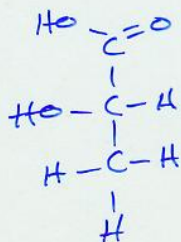 HO O
C
HO C H
H C H
H